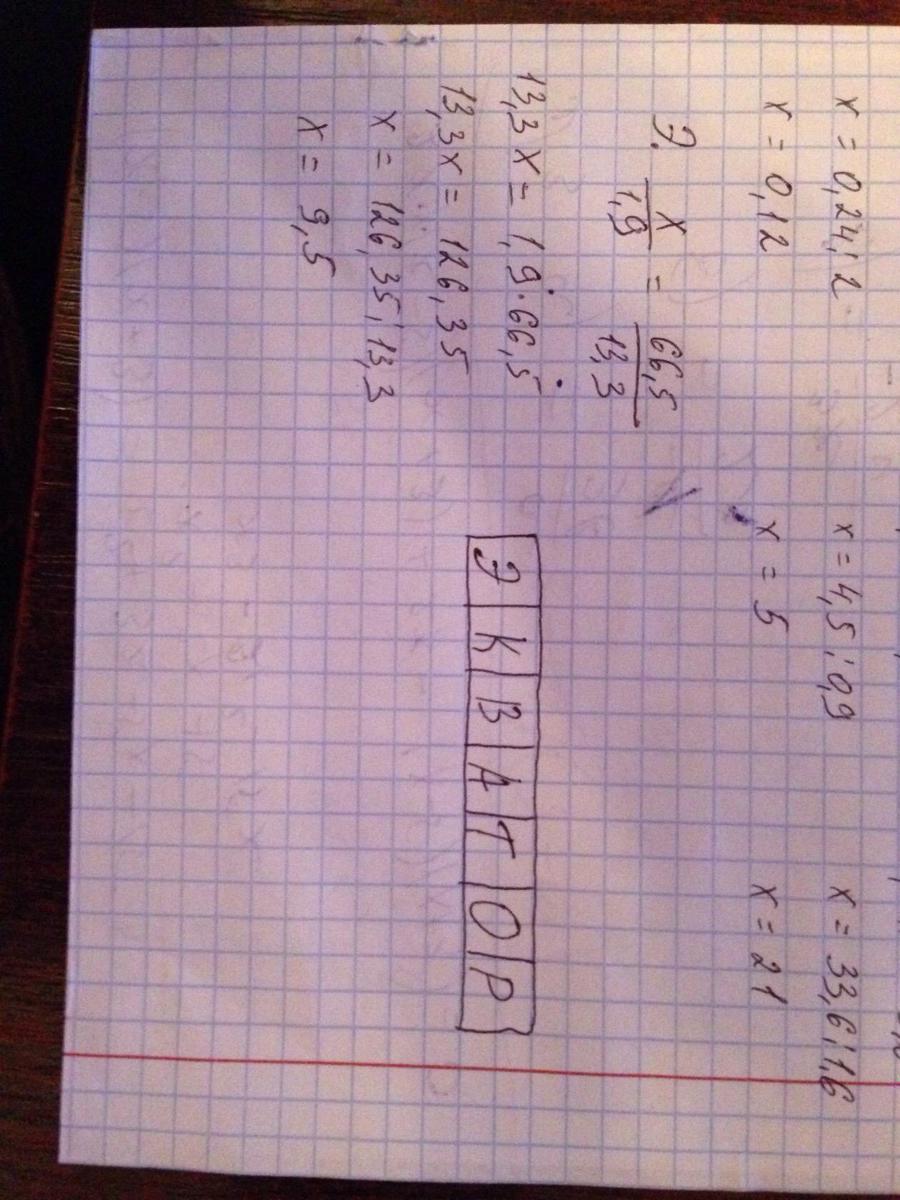 x = 0,24 : 2
x = 0,12
x = 4,5 : 0,9
x = 5
x = 33,6 : 1,6
x = 21
Э. x/1,9 = 66,5/13,3
13,3x = 1,9 · 66,5
13,3x = 126,35
x = 126,35 : 13,3
x = 9,5
ЭКВАТОР